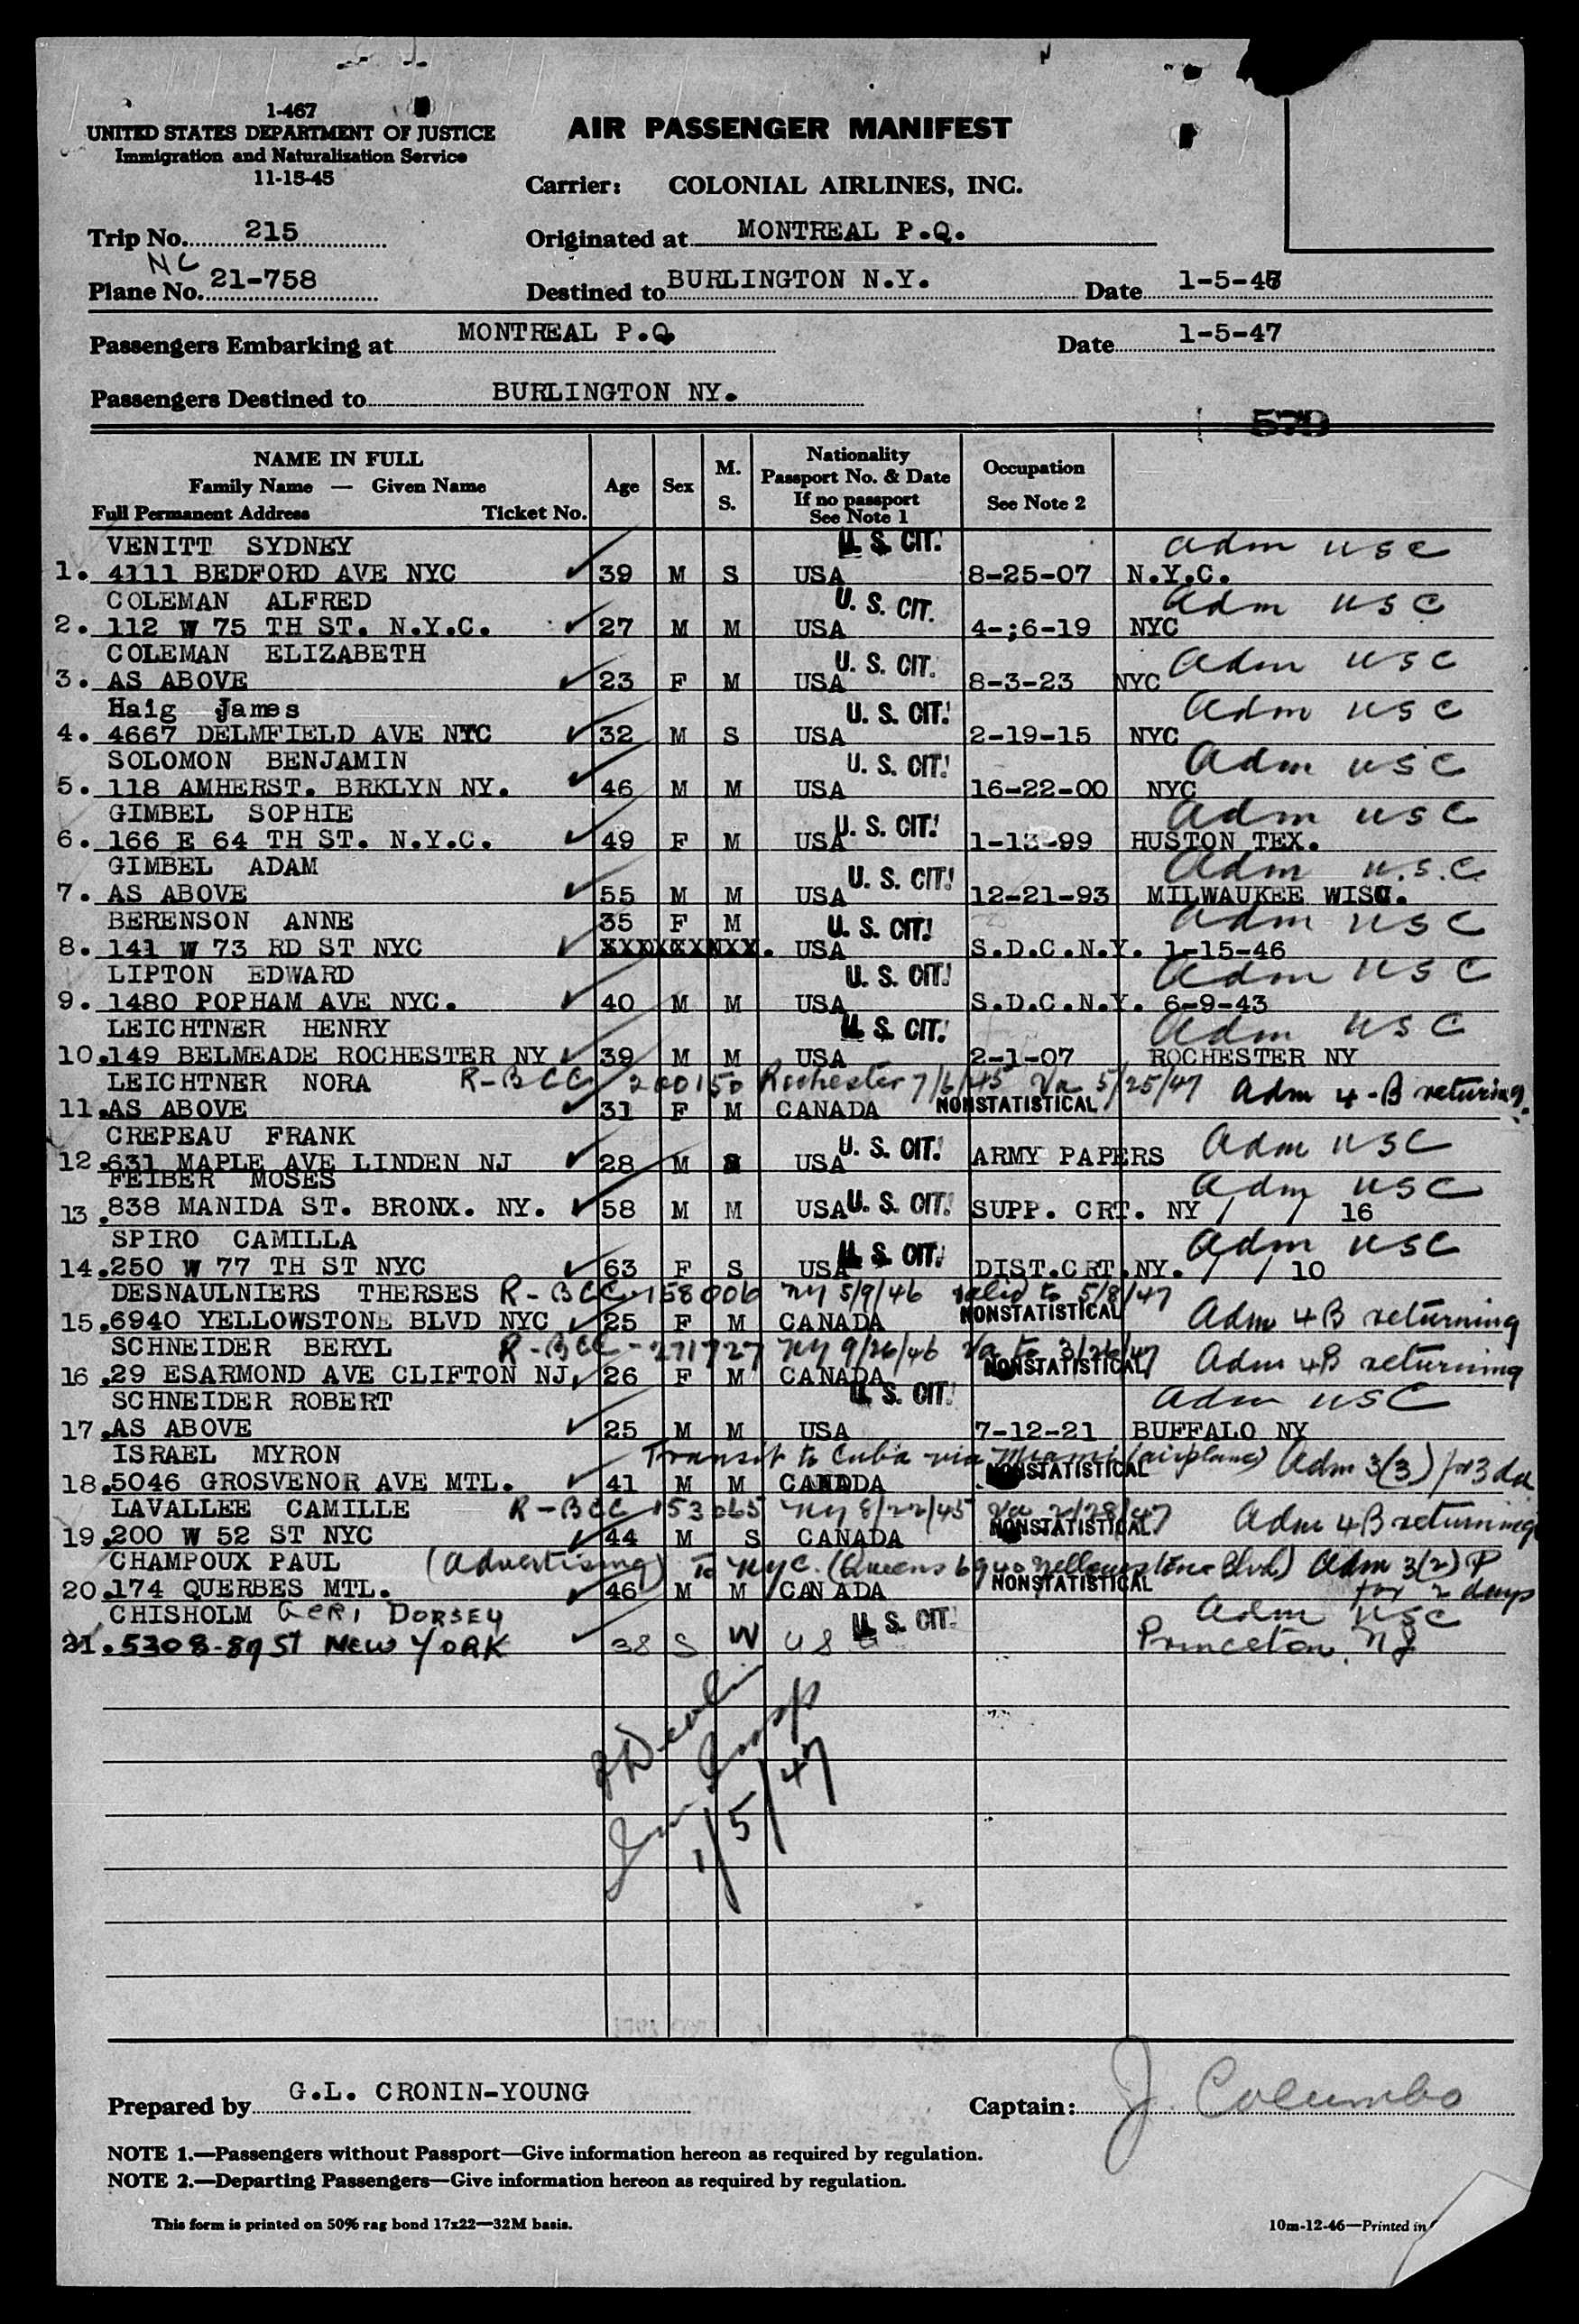 1-467
UNITED STATES DEPARTMENT OF JUSTICE
Immigration and Naturalization Service
11-15-45
AIR PASSENGER MANIFEST
Carrier: COLONIAL AIRLINES, INC.
Trip No. 215
Originated at MONTREAL P.Q.
NC
Plane No. 21-758
Destined to BURLINGTON N.Y. Date 1-5-47
Passengers Embarking at MONTREAL P.Q Date 1-5-47
Passengers Destined to BURLINGTON NY.
579
NAME IN FULL
Family Name — Given Name
Full Permanent Address Ticket No.
Age Sex M. S.
Nationality
Passport No. & Date
If no passport
See Note 1
Occupation
See Note 2
VENITT SYDNEY U. S. CIT. Adm USC
1. 4111 BEDFORD AVE NYC 39 M S USA 8-25-07 N.Y.C.
COLEMAN ALFRED U. S. CIT. Adm USC
2. 112 W 75 TH ST. N.Y.C. 27 M M USA 4-;6-19 NYC
COLEMAN ELIZABETH U. S. CIT. Adm USC
3. AS ABOVE 23 F M USA 8-3-23 NYC
Haig James U. S. CIT. Adm USC
4. 4667 DELMFIELD AVE NYC 32 M S USA 2-19-15 NYC
SOLOMON BENJAMIN U. S. CIT. Adm USC
5. 118 AMHERST. BRKLYN NY. 46 M M USA 16-22-00 NYC
GIMBEL SOPHIE U. S. CIT. Adm USC
6. 166 E 64 TH ST. N.Y.C. 49 F M USA 1-13-99 HUSTON TEX.
GIMBEL ADAM U. S. CIT. Adm U.S.C.
7. AS ABOVE 55 M M USA 12-21-93 MILWAUKEE WISC.
BERENSON ANNE 35 F M U. S. CIT. Adm USC
8. 141 W 73 RD ST NYC XXXXXXXXX. USA S.D.C.N.Y. 1-15-46
LIPTON EDWARD U. S. CIT. Adm USC
9. 1480 POPHAM AVE NYC. 40 M M USA S.D.C.N.Y. 6-9-43
LEICHTNER HENRY U. S. CIT. Adm USC
10. 149 BELMEADE ROCHESTER NY 39 M M USA 2-1-07 ROCHESTER NY
LEICHTNER NORA R-BCC 200150 Rochester 7/6/45 Va 5/25/47 Adm 4-B returning.
11. AS ABOVE 31 F M CANADA NONSTATISTICAL
CREPEAU FRANK U. S. CIT. Adm USC
12. 631 MAPLE AVE LINDEN NJ 28 M S USA ARMY PAPERS
FEIBER MOSES Adm USC
13. 838 MANIDA ST. BRONX. NY. 58 M M USA U. S. CIT. SUPP. CRT. NY / / 16
SPIRO CAMILLA U. S. CIT. Adm USC
14. 250 W 77 TH ST NYC 63 F S USA DIST.CRT.NY. / / 10
DESNAULNIERS THERSES R-BCC-158006 NY 5/9/46 valid to 5/8/47
15. 6940 YELLOWSTONE BLVD NYC 25 F M CANADA NONSTATISTICAL Adm 4B returning
SCHNEIDER BERYL R-BCC-271727 NY 9/26/46 Va to 3/26/47
16. 29 ESARMOND AVE CLIFTON NJ. 26 F M CANADA NONSTATISTICAL Adm 4B returning
SCHNEIDER ROBERT U. S. CIT. Adm USC
17. AS ABOVE 25 M M USA 7-12-21 BUFFALO NY
ISRAEL MYRON Transit to Cuba via Miami (airplane) Adm 3(3) for 3 da
18. 5046 GROSVENOR AVE MTL. 41 M M CANADA NONSTATISTICAL
LAVALLEE CAMILLE R-BCC 153065 NY 8/22/45 Va 2/28/47 Adm 4B returning
19. 200 W 52 ST NYC 44 M S CANADA NONSTATISTICAL
CHAMPOUX PAUL (Advertising) To NYC. (Queens 6940 Yellowstone Blvd) Adm 3(2) P
20. 174 QUERBES MTL. 46 M M CANADA NONSTATISTICAL for 2 days
CHISHOLM GERI DORSEY U. S. CIT. Adm USC
21. 5308-89 ST NEW YORK 38 S W USA Princeton, NJ
Devlin
1/5/47
Prepared by G.L. CRONIN-YOUNG
Captain: J. Columbo
NOTE 1.—Passengers without Passport—Give information hereon as required by regulation.
NOTE 2.—Departing Passengers—Give information hereon as required by regulation.
This form is printed on 50% rag bond 17x22—32M basis.
10m-12-46—Printed in